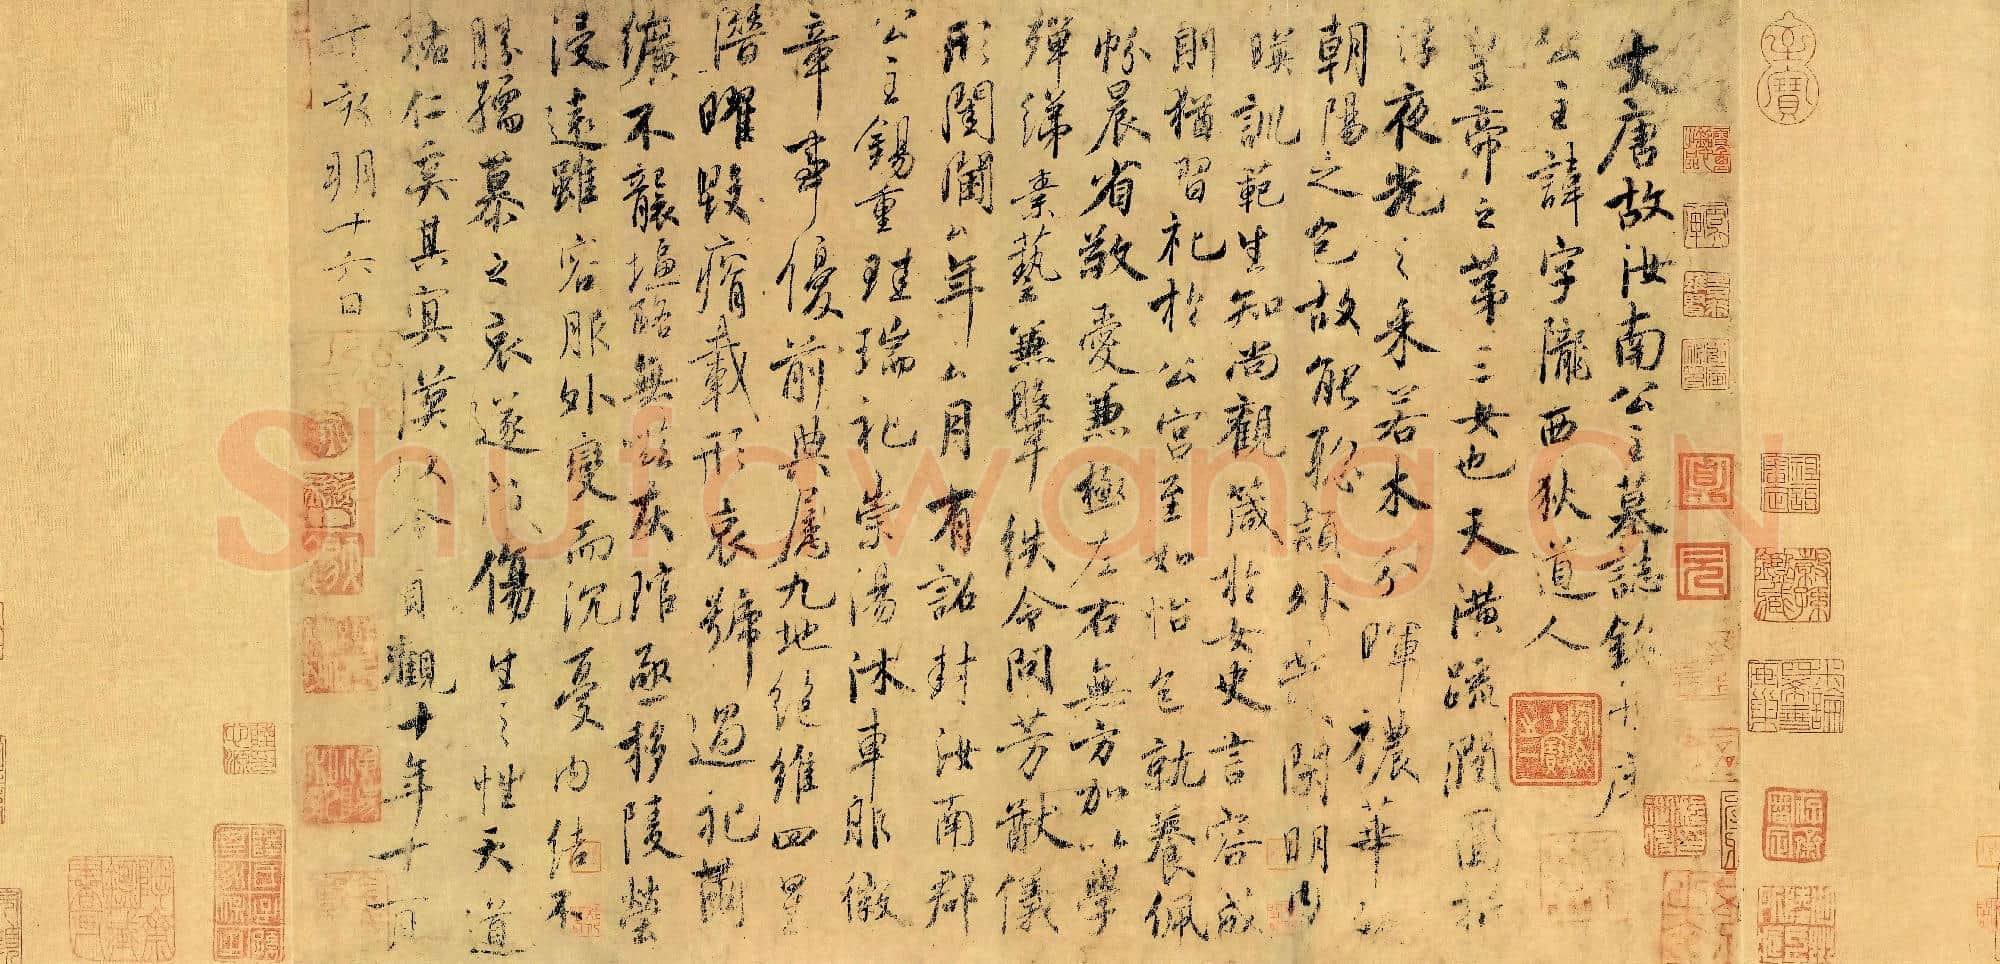 大唐故汝南公主墓誌銘并序
公主諱字隴西狄道人
皇帝之第三女也天潢疏潤圓折
浮夜光之采若木分暉穠華
朝陽之色故能聰穎外閑明內
暎訓範生知尚觀箴於女史言容成
則猶習礼於公宮至如怡色就養佩
帉晨省敬愛兼極左右無方加以學
殫綈素藝兼鞶紩令問芳猷儀
形閨閫厶年厶月有詔封汝南郡
公主錫重珪瑞礼崇湯沐車服徽
章事優前典属九地絕維四星
潛曜毀瘠載形哀號過礼繭
纊不襲塩酪無嗞灰琯亟移陵塋
浸遠雖容服外變而沉憂內結不
勝孺慕之哀遂成傷生之性天道
祐仁奚其冥漠以今貞觀十年十一月
丁亥朔十六日
Shufawang.CN